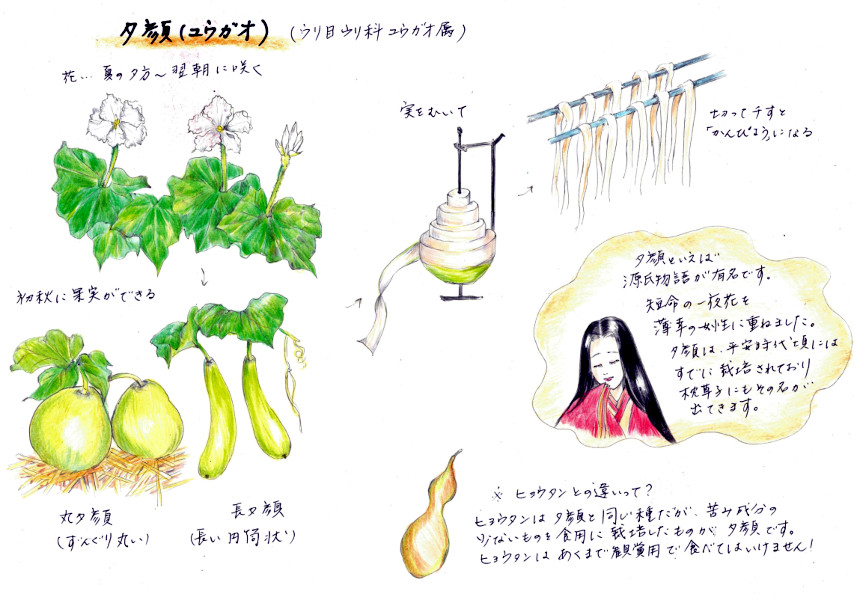 夕顔(ユウガオ)
(ウリ目ウリ科ユウガオ属)
花…夏の夕方〜翌朝に咲く
実をむいて
切って干すと
「かんぴょう」になる
初秋に果実ができる
夕顔といえば
源氏物語が有名です。
短命の一夜花を
薄幸の女性に重ねました。
夕顔は、平安時代頃には
すでに栽培されており
枕草子にもその名が
出てきます。
丸夕顔
(ずんぐり丸い)
長夕顔
(長い円筒状)
※ ヒョウタンとの違いって?
ヒョウタンは夕顔と同じ種だが、苦み成分の
少ないものを食用に栽培したものが夕顔です。
ヒョウタンはあくまで観賞用で食べてはいけません!